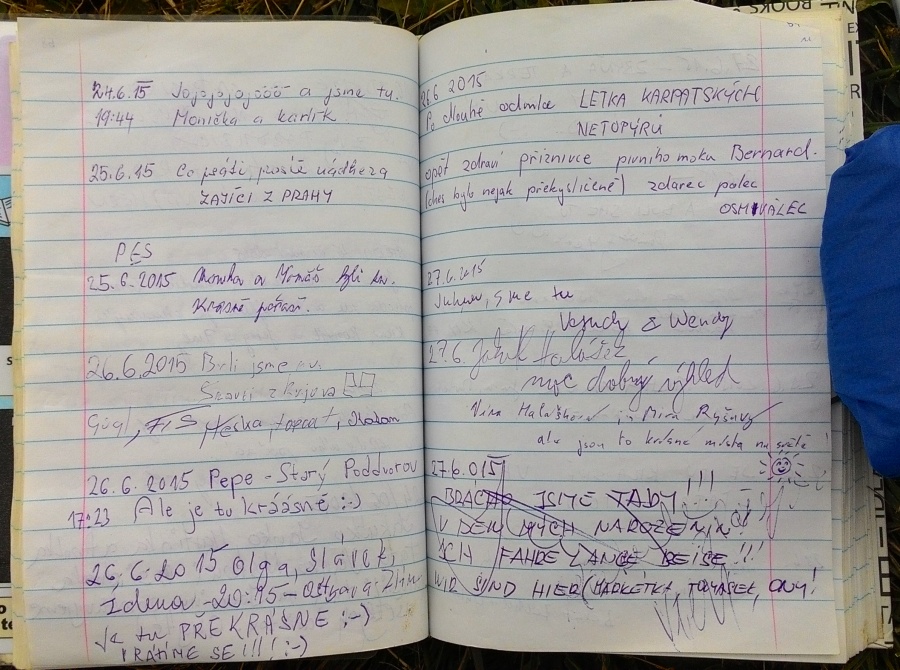 24.6.15 Jojojojojóóó a jsme tu.
19:44 Monička a karlík
25.6.15 Co psáti prostě nádhera
ZAJÍCI Z PRAHY
PES
25.6.2015 Monika a Tomáš byli zde.
Krásné počasí.
26.6.2015 Byli jsme
Skauti z Kyjova
Gúgl, FIS
26.6.2015 Pepe - Starý Poddvorov
17:23 Ale je tu kráásně :-)
26.6.2015 Olga, Slávek,
Zdena - 20:45 - Ostrava-Zlín
Je tu PŘEKRÁSNĚ :-)
VRÁTÍME SE!!! :-)
26.6 2015
Po dlouhé odmlce LETKA KARPATSKÝCH
NETOPÝRŮ
opět zdraví příznivce pivního moku Bernard.
(dnes bylo nejak překysličené) zdarec palec
OSMIKÁLEC
27.6.2015
Juhuu, sme tu
& Wendy
27.6.
moc dobrý výhled
ale jsou to krásné místa na světě!
27.6.015
BRÁCHO JSME TADY!!!
V DEN MÝCH NAROZENIN!
ICH FAHRE LANGE REISE!!!
WIR SIND HIER (MARKETKA, TOMASEK, ONY!
BOOKS